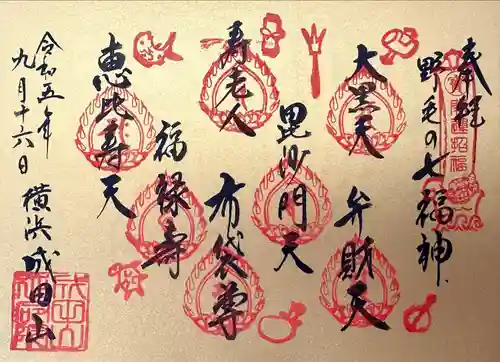 奉拝
野毛の七福神
大黒天
弁財天
毘沙門天
寿老人
布袋尊
福禄寿
恵比寿天
令和五年
九月十六日
横浜成田山